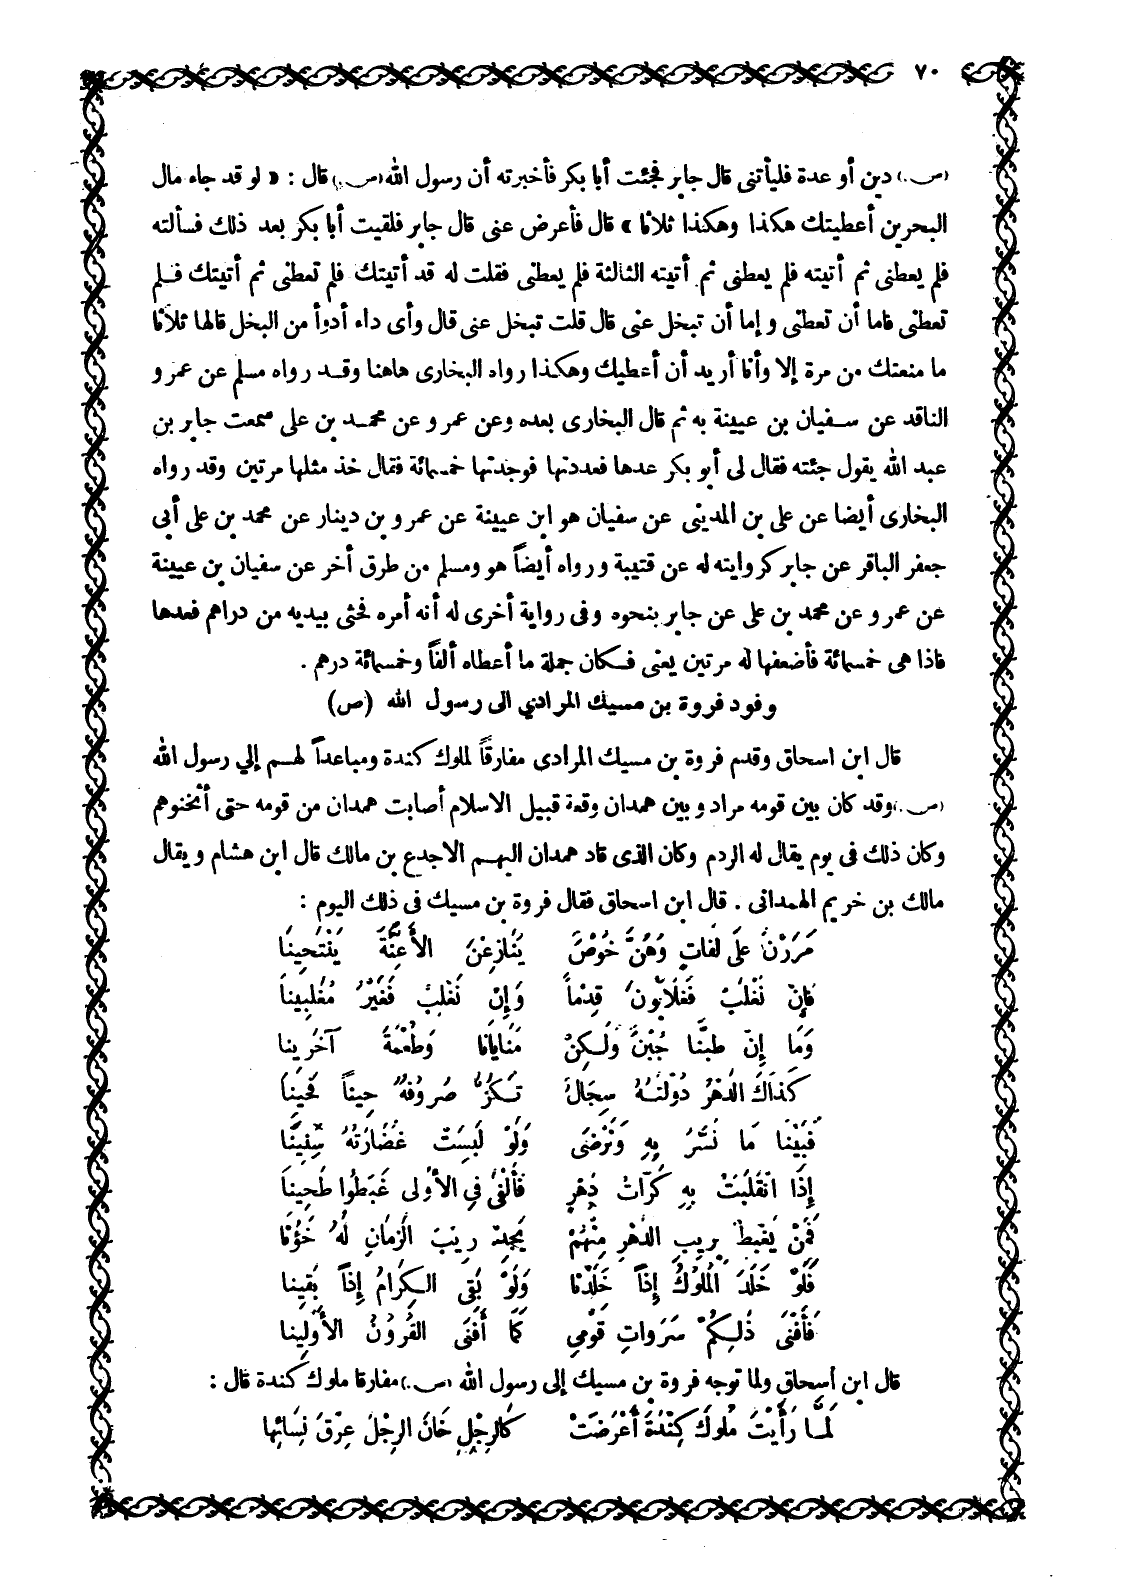 ٧٠
(ص.) دين أو عدة فليأتنى قال جابر فجئت أبا بكر فأخبرته أن رسول الله (ص.) قال : « لو قد جاء مال
البحرين أعطيتك هكذا وهكذا ثلاثا » قال فأعرض عنى قال جابر فلقيت أبا بكر بعد ذلك فسألته
فلم يعطنى ثم أتيته فلم يعطنى ثم أتيته الثالثة فلم يعطنى فقلت له قد أتيتك فلم تعطنى ثم أتيتك فلم
تعطنى فاما أن تعطنى وإما أن تبخل عنى قال قلت تبخل عنى قال وأى داء أدوأ من البخل قالها ثلاثا
ما منعتك من مرة إلا وأنا أريد أن أعطيك وهكذا رواه البخارى هاهنا وقد رواه مسلم عن عمرو
الناقد عن سفيان بن عيينة به ثم قال البخارى بعده وعن عمرو عن محمد بن على سمعت جابر بن
عبد الله يقول جئته فقال لى أبو بكر عدها فعددتها فوجدتها خمسمائة فقال خذ مثلها مرتين وقد رواه
البخارى أيضا عن على بن المدينى عن سفيان هو ابن عيينة عن عمرو بن دينار عن محمد بن على أبى
جعفر الباقر عن جابر كروايته له عن قتيبة ورواه أيضاً هو ومسلم من طرق أخر عن سفيان بن عيينة
عن عمرو عن محمد بن على عن جابر بنحوه وفى رواية أخرى له أنه أمره فحثى بيديه من دراهم فعدها
فاذا هى خمسمائة فأضعفها له مرتين يعنى فكان جملة ما أعطاه ألفاً وخمسمائة درهم .
وفود فروة بن مسيك المرادي الى رسول الله (ص)
قال ابن اسحاق وقدم فروة بن مسيك المرادى مفارقاً لملوك كندة ومباعداً لهم إلي رسول الله
(ص.) وقد كان بين قومه مراد وبين همدان وقعة قبيل الاسلام أصابت همدان من قومه حتى أثخنوهم
وكان ذلك فى يوم يقال له الردم وكان الذى قاد همدان اليهم الاجدع بن مالك قال ابن هشام ويقال
مالك بن خريم الهمدانى . قال ابن اسحاق فقال فروة بن مسيك فى ذلك اليوم :
مَرَرْنَ عَلَى لفَاتٍ وَهُنَّ خُوْصٌ يُنَازِعْنَ الأَعِنَّةَ يَنْتَحِينَا
فَإِنْ نَغْلِبْ فَغَلَّابُونَ قِدْماً وَإِنْ نُغْلَبْ فَغَيْرُ مُغَلَّبِينَا
وَمَا إِنْ طِبُّنَا جُبْنٌ وَلَكِنْ مَنَايَانَا وَطُعْمَةُ آخَرِينَا
كَذَاكَ الدَّهْرُ دُوْلَتُهُ سِجَالٌ تَكُرُّ صُرُوفُهُ حِيناً فَحِينَا
فَبَيْنَا مَا نُسَرُّ بِهِ وَنَرْضَى وَلَوْ لَبِسَتْ غَضَارَتُهُ سِنِينَا
إِذَا انْقَلَبَتْ بِهِ كَرَّاتُ دَهْرٍ فَأَلْفَى فِي الأُولى غَبَطُوا طَحِينَا
فَمَنْ يَغْبِطْ بِرَيبِ الدَّهْرِ مِنْهُمْ يَجِدْ رَيبَ الزَّمَانِ لَهُ خَؤُنَا
فَلَوْ خَلَدَ الْمُلُوكُ إِذَاً خَلَدْنَا وَلَوْ بَقَى الكِرَامُ إِذَاً بَقِينَا
فَأَفْنَى ذَلِكُمْ سَرَوَاتِ قَوْمِي كَمَا أَفْنَى القُرُونَ الأَوَّلِينَا
قال ابن أسحاق ولما توجه فروة بن مسيك إلى رسول الله (ص.) مفارقا ملوك كندة قال :
لَمَّا رَأَيْتُ مُلُوكَ كِنْدَةَ أَعْرَضَتْ كَالرِجْلِ خَانَ الرِجْلَ عِرْقُ نِسَائِهَا